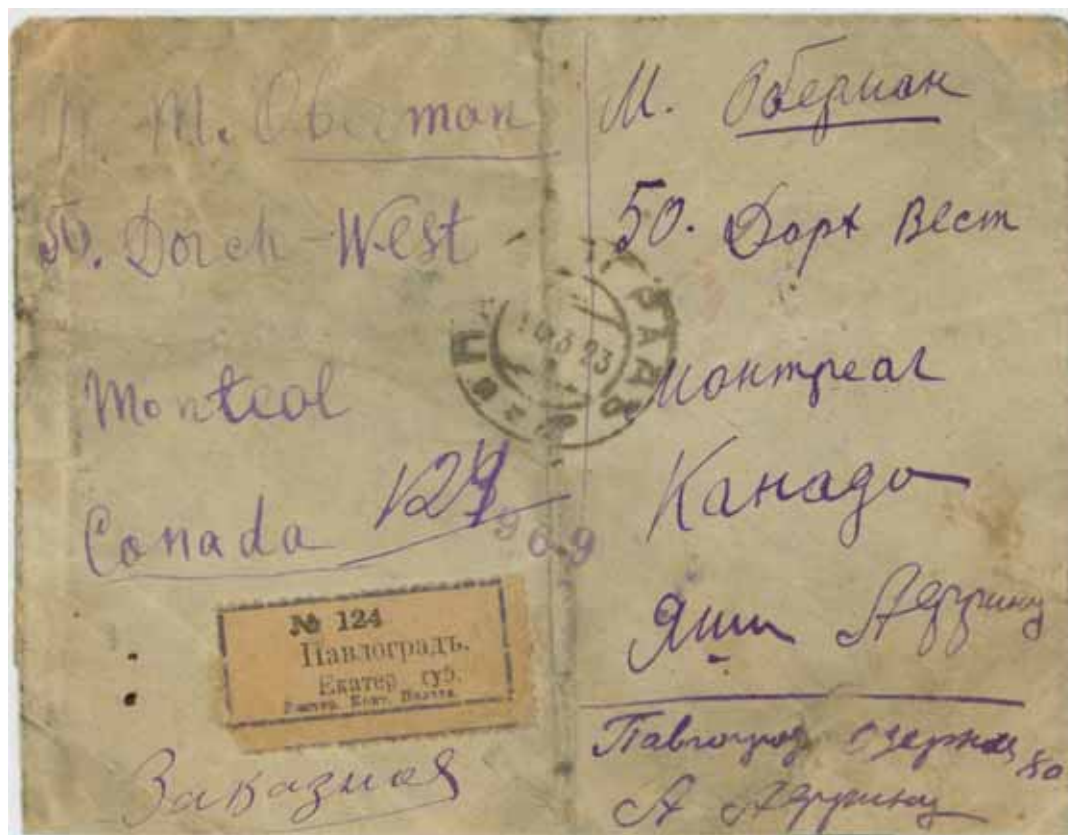 M. Oberman
50. Dorch-West
Monteol
Canada
124
969
№ 124
Павлоградъ.
Екатер. губ.
Заказное
М. Оберман
50. Дорх Вест
Монтреал
Канада
Яши
Павлоград Озерная 80
А